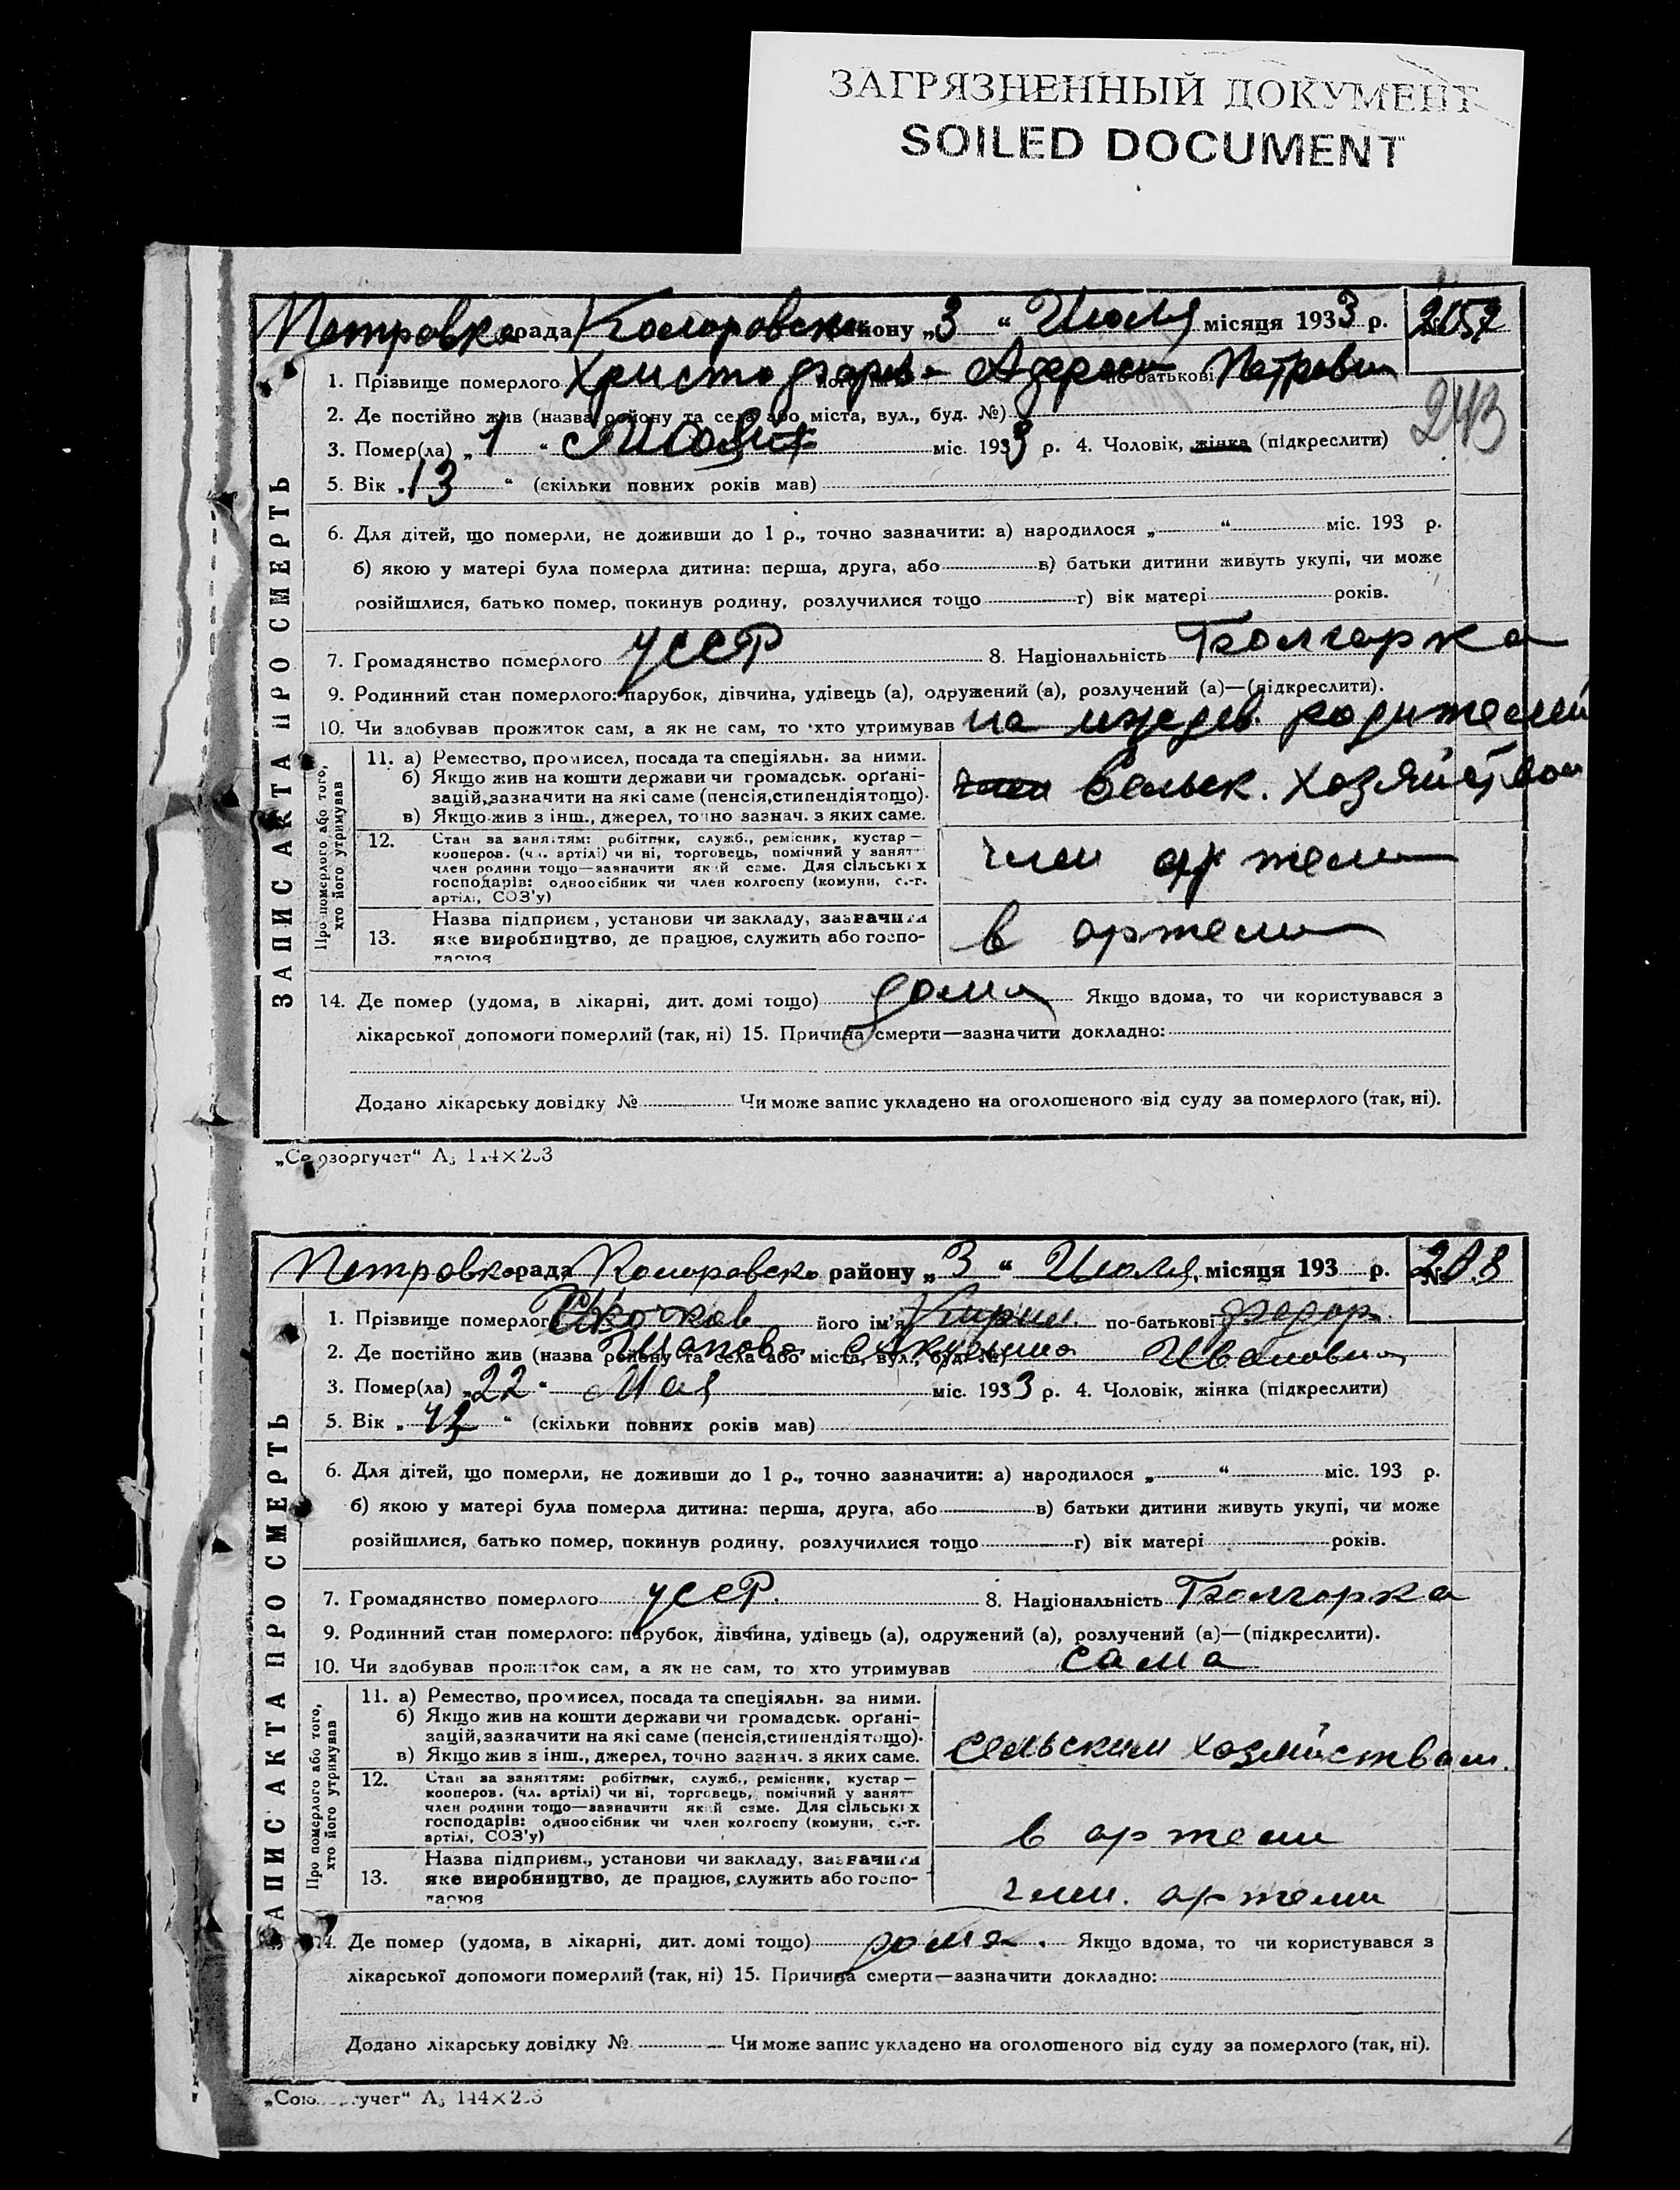 ЗАГРЯЗНЕННЫЙ ДОКУМЕНТ
SOILED DOCUMENT
Петровка рада Коларовско району „3“ Июля місяця 1933 р.
243
1. Прізвище померлого Христофоров по-батькові Петрович
2. Де постійно жив (назва району та села або міста, вул., буд. №)
3. Помер(ла) „1“ міс. 1933 р. 4. Чоловік, жінка (підкреслити)
5. Вік „13“ (скільки повних років мав)
6. Для дітей, що померли, не доживши до 1 р., точно зазначити: а) народилося „ “ міс. 193 р.
б) якою у матері була померла дитина: перша, друга, або в) батьки дитини живуть укупі, чи може
розійшлися, батько помер, покинув родину, розлучилися тощо г) вік матері років.
7. Громадянство померлого УССР 8. Національність Болгарка
9. Родинний стан померлого: парубок, дівчина, удівець (а), одружений (а), розлучений (а)—(підкреслити).
10. Чи здобував прожиток сам, а як не сам, то хто утримував на иждев. родителей
ЗАПИС АКТА ПРО СМЕРТЬ
Про померлого або того, хто його утримував
11. а) Ремество, промисел, посада та спеціяльн. за ними.
б) Якщо жив на кошти держави чи громадськ. орґані-
зацій, зазначити на які саме (пенсія, стипендія тощо).
в) Якщо жив з інш., джерел, точно зазнач. з яких саме.
Сельск. хозяйством
12. Стан за заняттям: робітник, служб., ремісник, кустар—
кооперов. (чл. артілі) чи ні, торговець, помічний у занятт
член родини тощо—зазначити який саме. Для сільських
господарів: одноосібник чи член колгоспу (комуни, с.-г.
артілі, СОЗ'у)
член артели
13. Назва підприєм., установи чи закладу, зазначити
яке виробництво, де працює, служить або госпо-
дарює
в артели
14. Де помер (удома, в лікарні, дит. домі тощо) дома Якщо вдома, то чи користувався з
лікарської допомоги померлий (так, ні) 15. Причина смерти—зазначити докладно:
Додано лікарську довідку № Чи може запис укладено на оголошеного від суду за померлого (так, ні).
„Союзоргучет“ А5 144×203
Петровка рада Коларовско району „3“ Июля місяця 193 р. № 208
1. Прізвище померлого його ім'я Кирил по-батькові Федор.
2. Де постійно жив (назва району та села або міста, вул., буд. №) Акулина Ивановна
3. Помер(ла) „22“ Мая міс. 1933 р. 4. Чоловік, жінка (підкреслити)
5. Вік „ “ (скільки повних років мав)
6. Для дітей, що померли, не доживши до 1 р., точно зазначити: а) народилося „ “ міс. 193 р.
б) якою у матері була померла дитина: перша, друга, або в) батьки дитини живуть укупі, чи може
розійшлися, батько помер, покинув родину, розлучилися тощо г) вік матері років.
7. Громадянство померлого УССР. 8. Національність Болгарка
9. Родинний стан померлого: парубок, дівчина, удівець (а), одружений (а), розлучений (а)—(підкреслити).
10. Чи здобував прожиток сам, а як не сам, то хто утримував сама
ЗАПИС АКТА ПРО СМЕРТЬ
Про померлого або того, хто його утримував
11. а) Ремество, промисел, посада та спеціяльн. за ними.
б) Якщо жив на кошти держави чи громадськ. орґані-
зацій, зазначити на які саме (пенсія, стипендія тощо).
в) Якщо жив з інш., джерел, точно зазнач. з яких саме.
сельским хозяйствам.
12. Стан за заняттям: робітник, служб., ремісник, кустар—
кооперов. (чл. артілі) чи ні, торговець, помічний у занятт
член родини тощо—зазначити який саме. Для сільських
господарів: одноосібник чи член колгоспу (комуни, с.-г.
артілі, СОЗ'у)
в артели
13. Назва підприєм., установи чи закладу, зазначити
яке виробництво, де працює, служить або госпо-
дарює
член. артели
14. Де помер (удома, в лікарні, дит. домі тощо) дома. Якщо вдома, то чи користувався з
лікарської допомоги померлий (так, ні) 15. Причина смерти—зазначити докладно:
Додано лікарську довідку № Чи може запис укладено на оголошеного від суду за померлого (так, ні).
„Союзоргучет“ А5 144×203